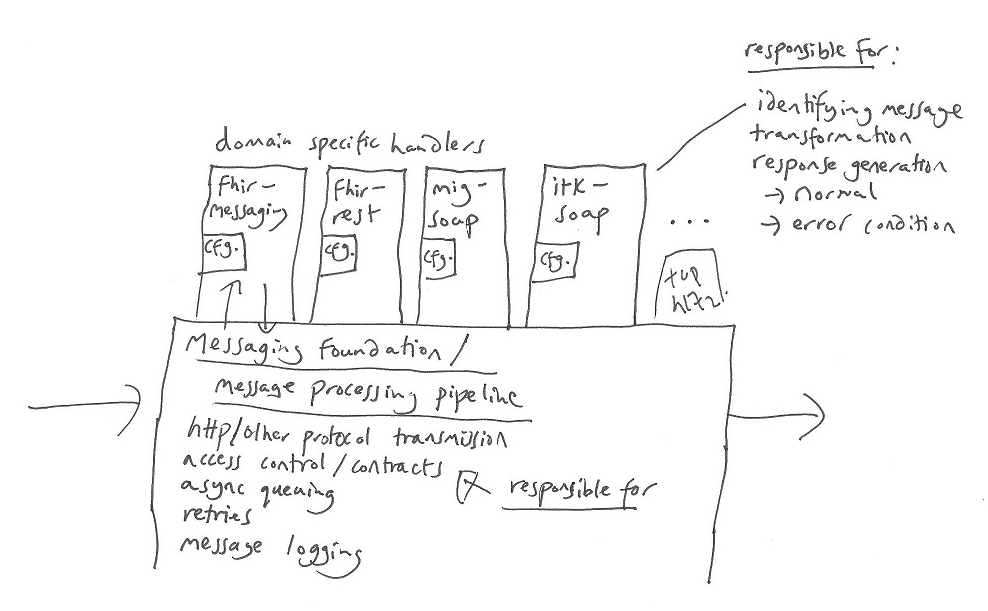 responsible for:
identifying message
transformation
response generation
→ normal
→ error condition
domain specific handlers
fhir-
messaging
cfg.
fhir-
rest
cfg.
mig-
soap
cfg.
itk-
soap
cfg.
...
hl72
Messaging foundation /
message processing pipeline
http/other protocol transmission
access control/contracts
async queuing
retries
message logging
responsible for